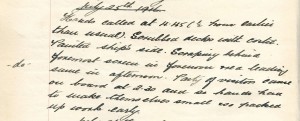 July 25th
Hands called at 4.45 (¼ hour earlier
than usual). Scrubbed decks with
Painted ship's side. Scraping behind
-do- foremost screen in and leading
same in afternoon. Party of visitors came
on board at 2.30 and so hands had
to make themselves small so packed
up work early.